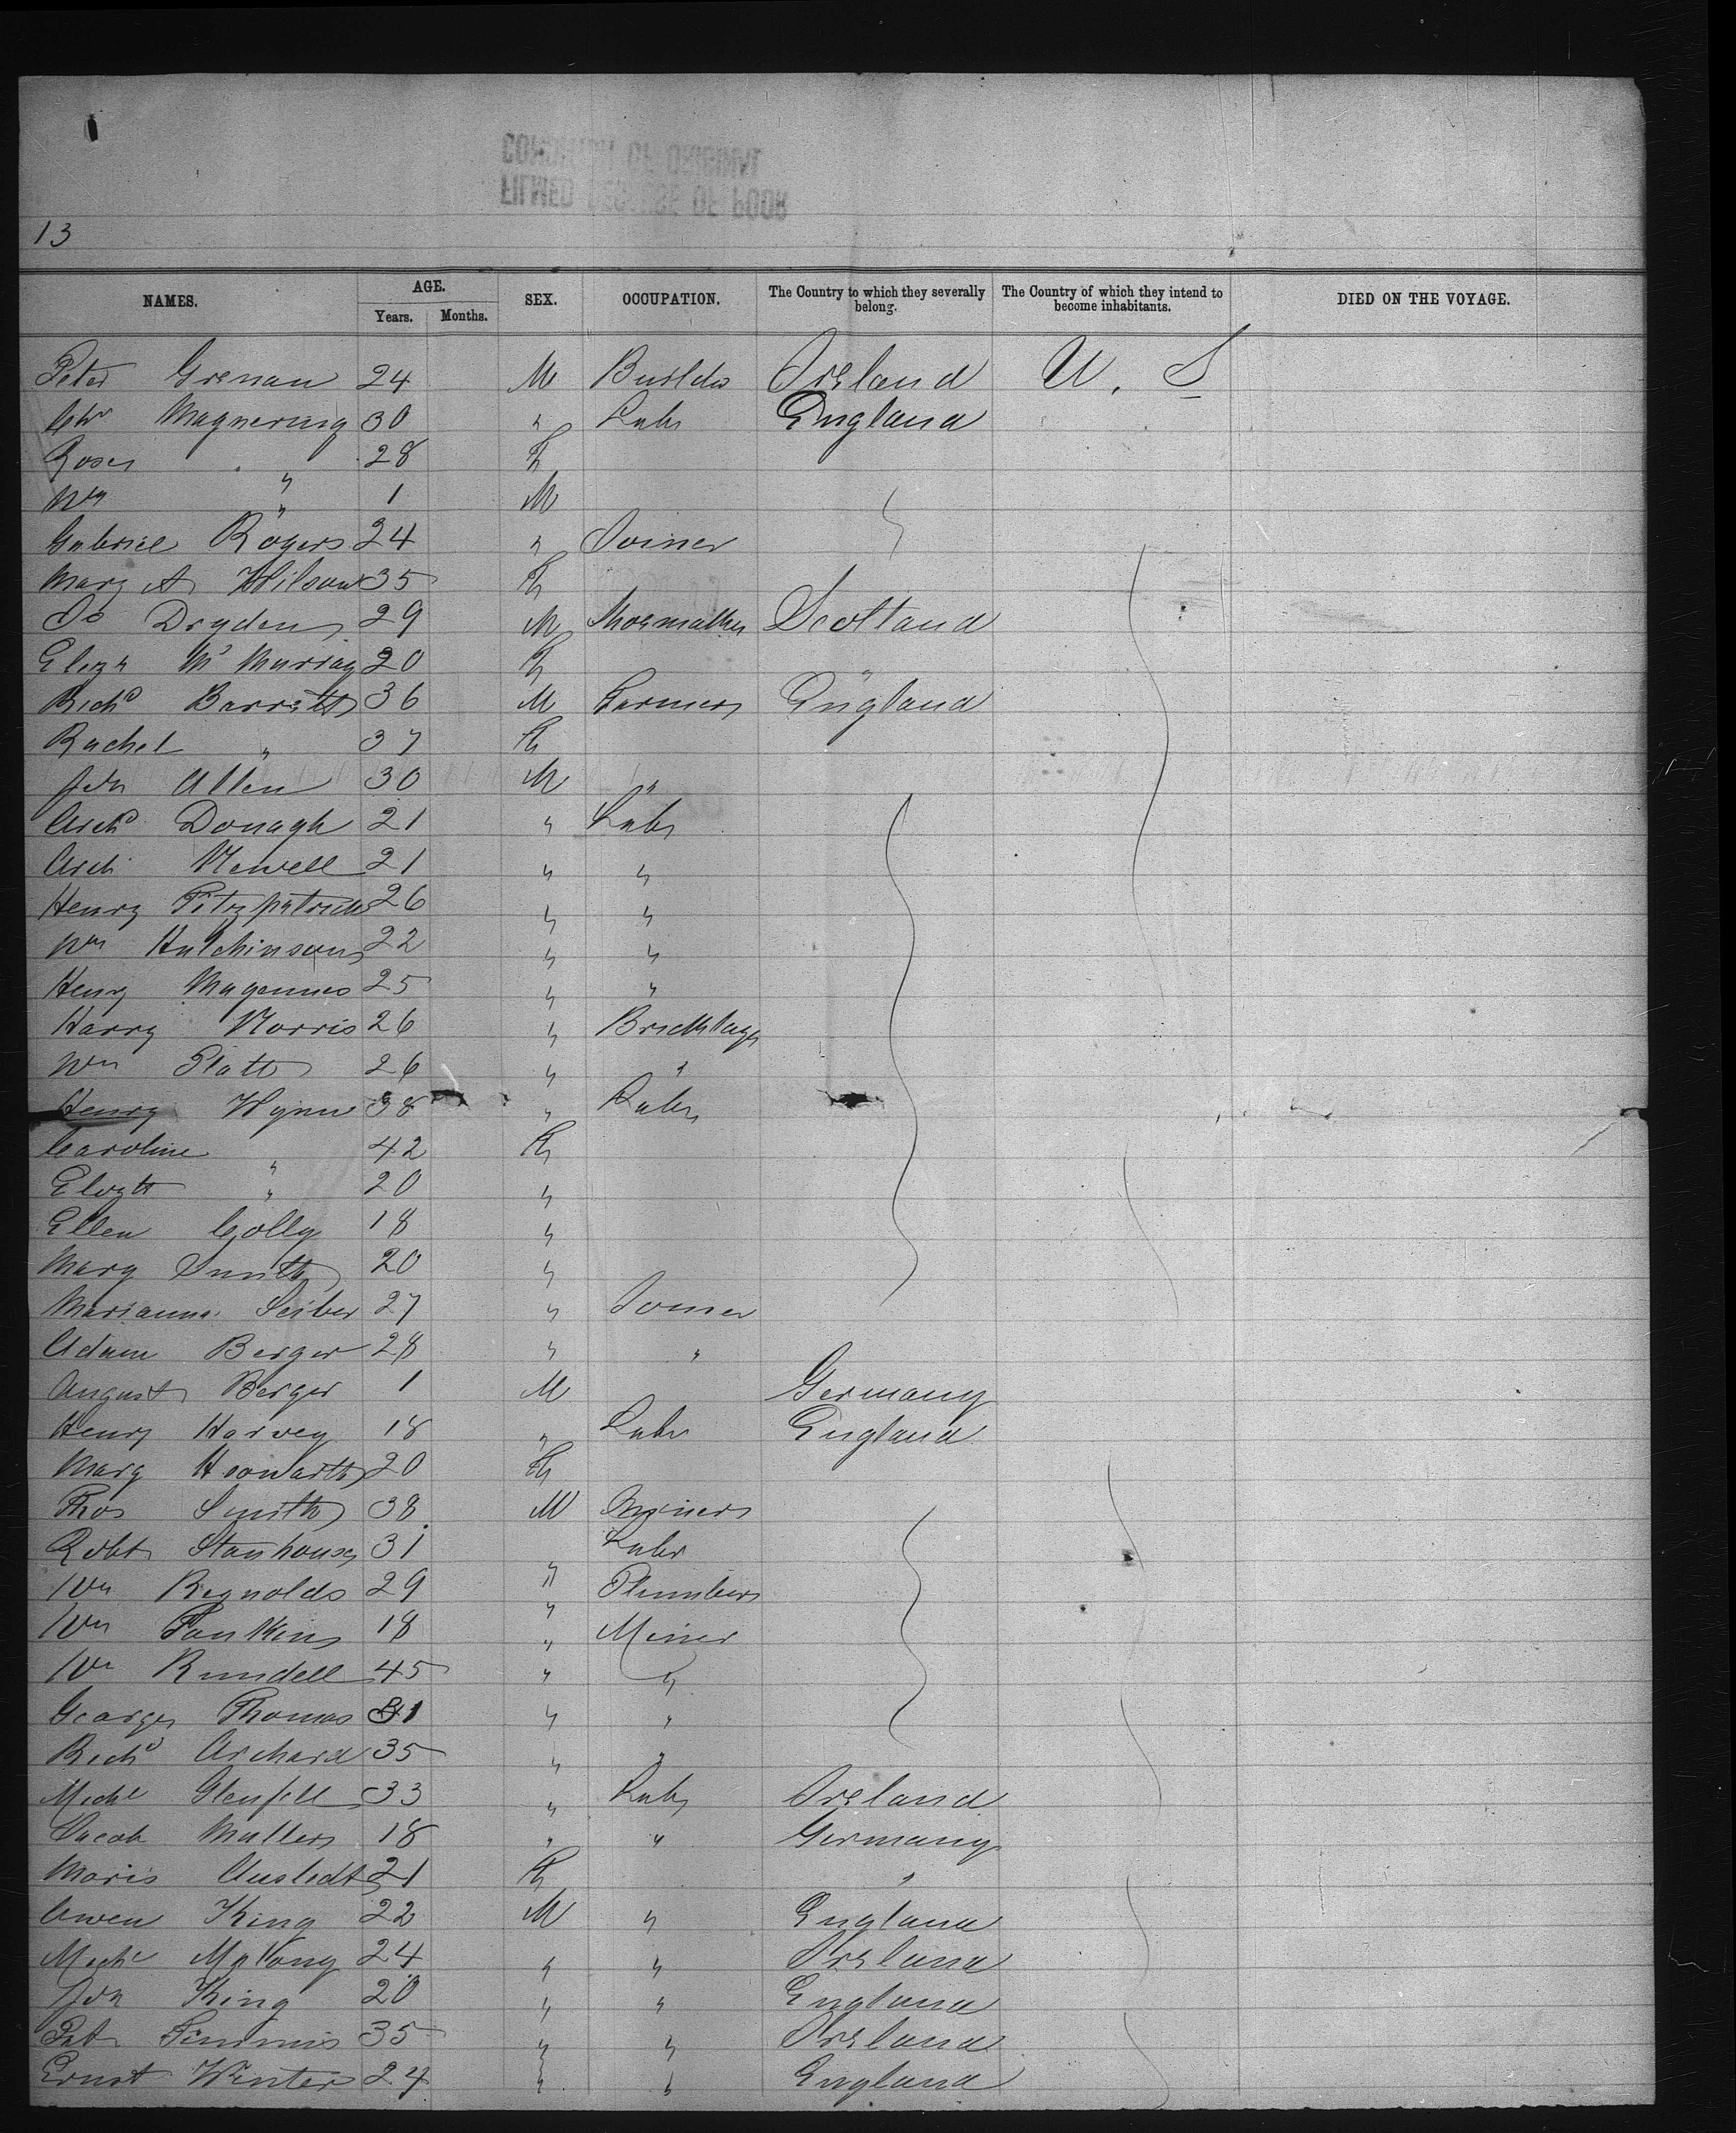 13
NAMES. AGE. Years. Months. SEX. OCCUPATION. The Country to which they severally belong. The Country of which they intend to become inhabitants. DIED ON THE VOYAGE.
Peter Grenan 24 M Builder Ireland U. S
Magnering 30 " Labr England
Rose " 28 F
Wm " 1 M
Gabriel Rogers 24 " Joiner
Mary A Wilson 35 F
Jo Dryden 29 M Shoemaker Scotland
Eliza Mc Murray 20 F "
Richd Barrett 36 M Farmer England
Rachel " 37 F
Jon Allen 30 M "
Archd Donagh 21 " Labr
Arch Newell 21 " "
Henry Fitzpatrick 26 " "
Wm Hutchinson 22 " "
Henry Magennes 25 " "
Harry Norris 26 " Bricklayr
Wm Platt 26 " "
Henry Wynn 38 " Labr
Caroline " 42 F
Elizth " 20 "
Ellen Golly 18 "
Mary Smith 20 "
Marianna Seiber 27 " Joiner
Adam Berger 28 " "
August Berger 1 M Germany
Henry Harvey 18 " Labr England
Mary Howarth 20 F
Thos Smith 38 M
Robt Stanhouse 31 Labr
Wm Reynolds 29 " Plumber
Wm Tonkins 18 " Miner
Wm Rundell 45 " "
George Thomas " "
Richd Archard 35 " "
Michl Glenfell 33 " Labr Ireland
Jacob Muller 18 " " Germany
Maris 21 F "
Owen King 22 M " England
Michl Malony 24 " " Ireland
Jon King 20 " " England
Pat Simmis 35 " " Ireland
Ernst Winter 24 " " England